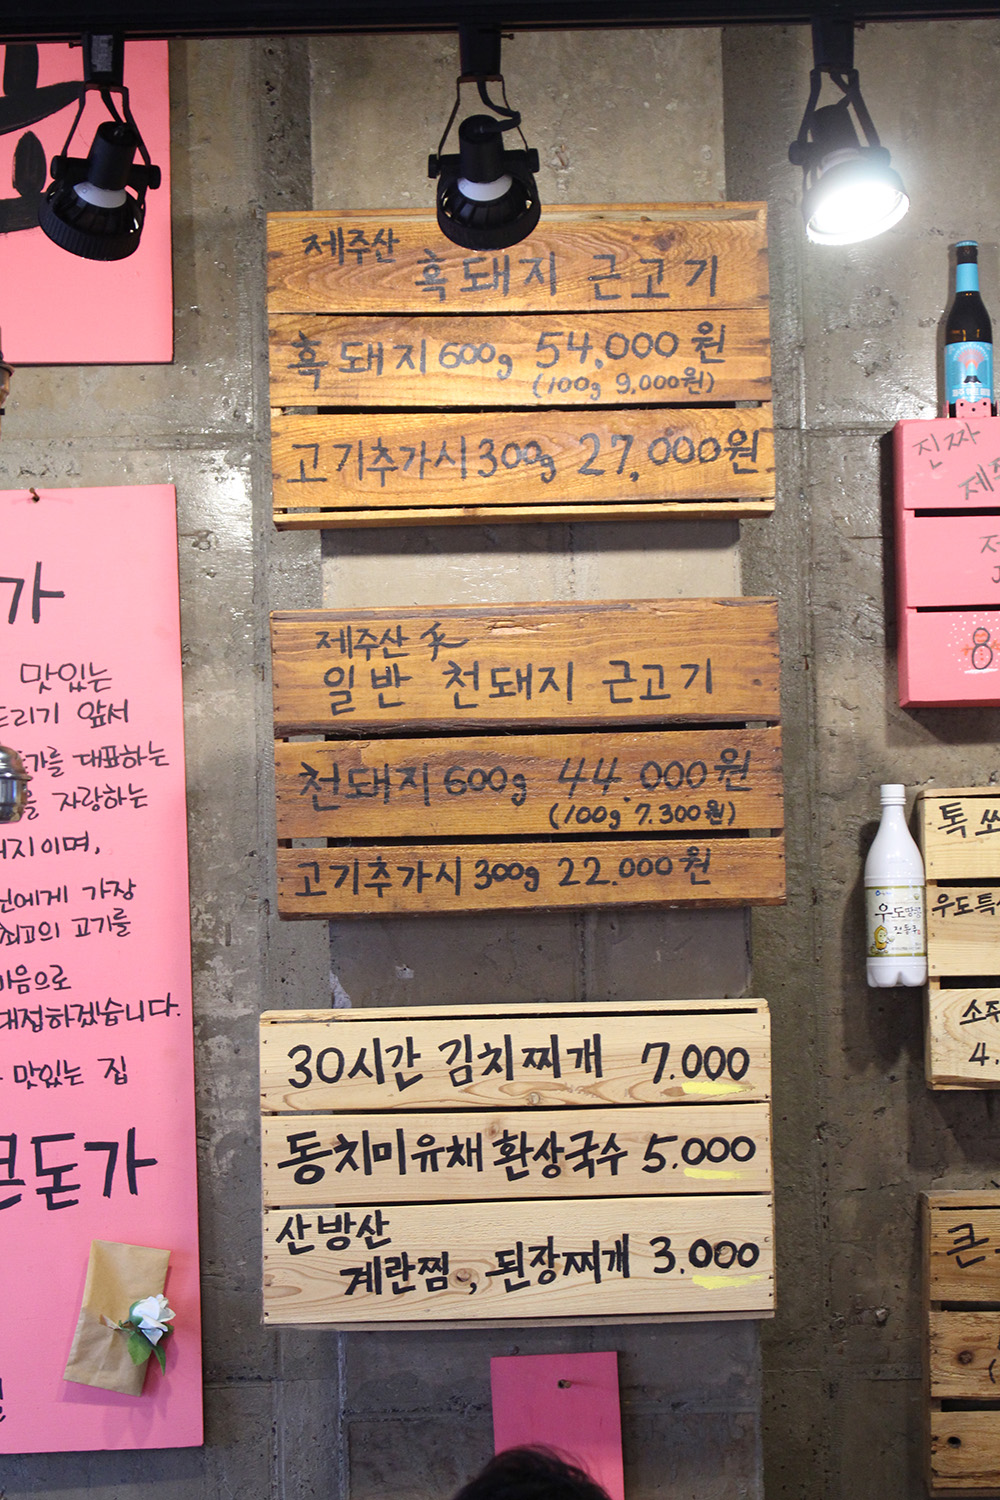 제주산
흑돼지 근고기
흑돼지 600g 54,000원
(100g 9,000원)
고기추가시 300g 27,000원
제주산
일반 천돼지 근고기
천돼지 600g 44.000원
(100g 7.300원)
고기추가시 300g 22.000원
30시간 김치찌개 7.000
동치미유채 환상국수 5.000
산방산
계란찜, 된장찌개 3.000
가
맛있는
드리기 앞서
대표하는
자랑하는
돼지이며,
가장
최고의 고기를
마음으로
대접하겠습니다.
맛있는 집
큰돈가
진짜
제주
8
톡 쏘
우도특산
소주
4.
우도땅콩
전통주
큰